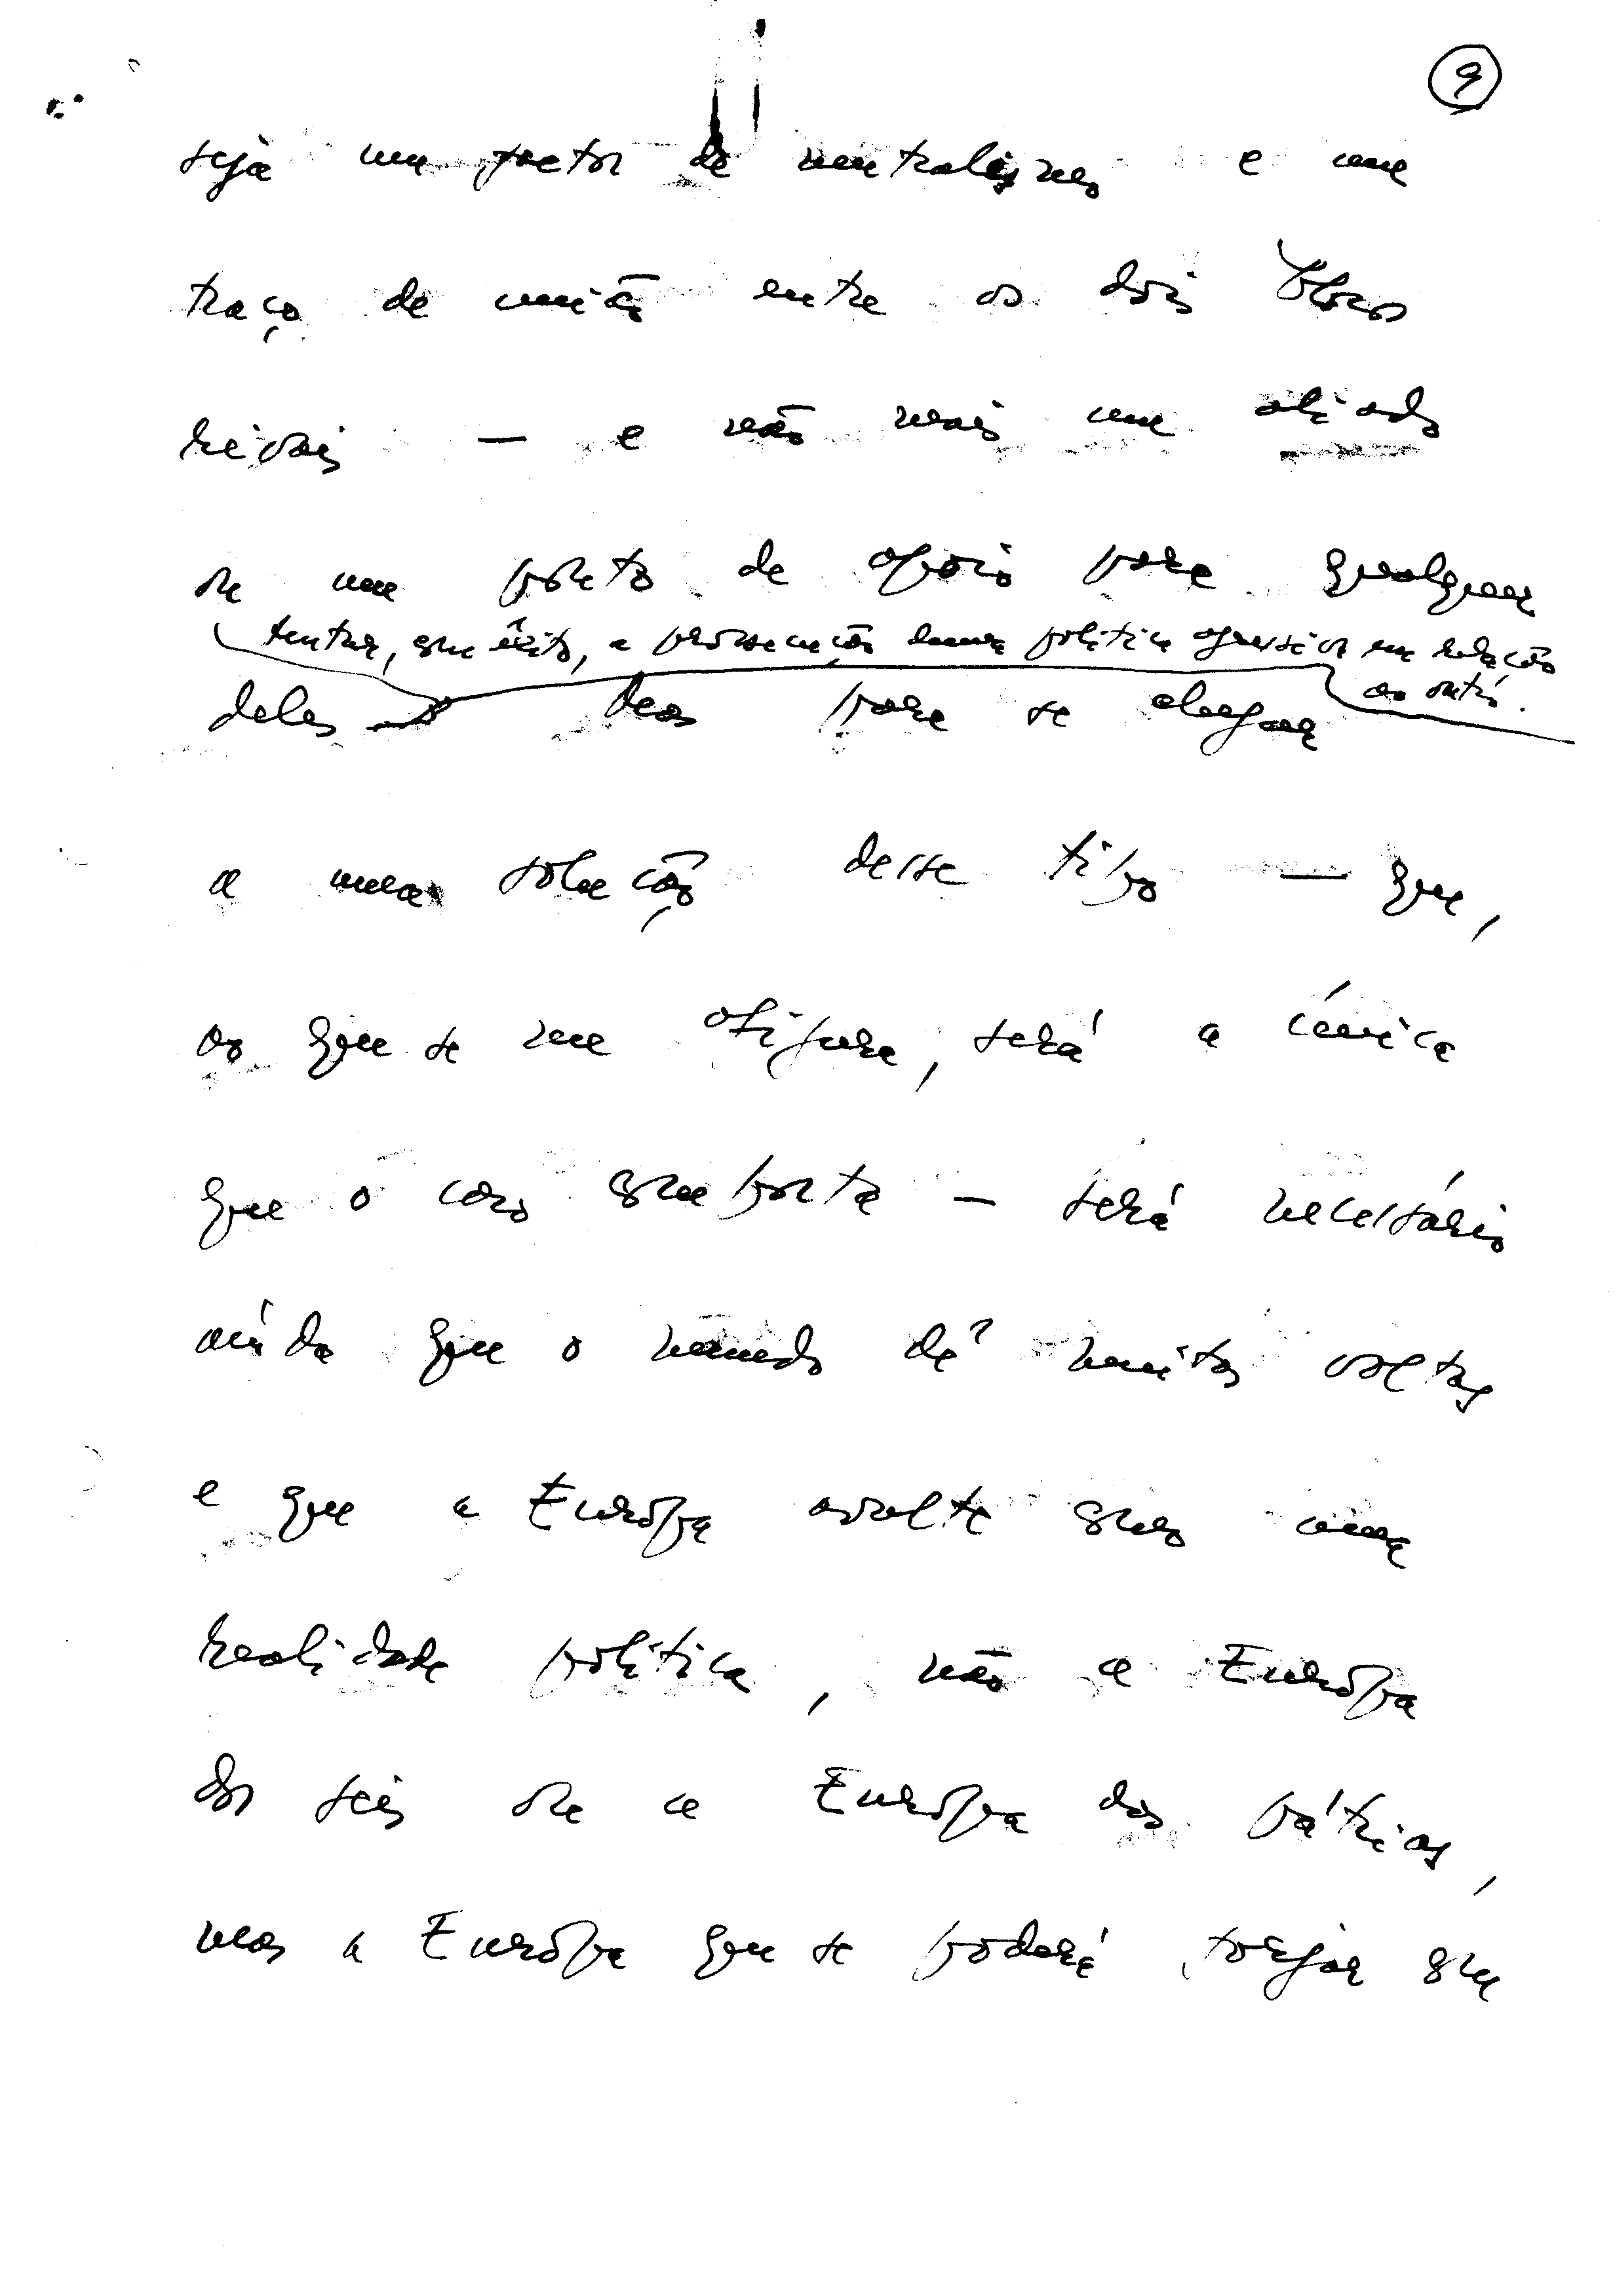 9
seja um factor de neutralismo e um
traço de união entre os dois blocos
rivais — e não mais um aliado
ou um ponto de apoio para qualquer
tentar, com êxito, a prossecução duma política ofensiva em relação
ao outro.
deles Mas para se chegar
a uma solução desse tipo — que,
ao que se me afigura, será a única
que o caso comporta — será necessário
ainda que o mundo dê muitas voltas
e que a Europa avulte como uma
realidade política, não a Europa
dos seis ou a Europa das pátrias,
mas a Europa que se poderá forjar em